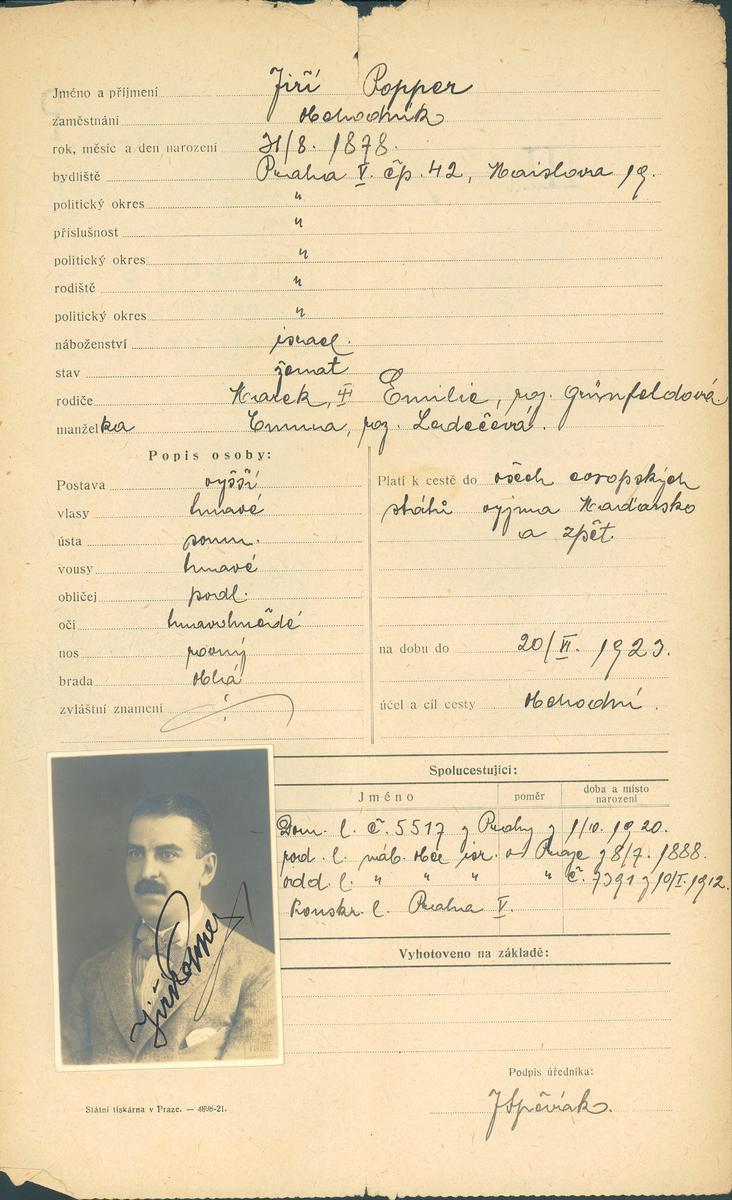 Jméno a příjmení Jiří Popper
zaměstnání obchodník
rok, měsíc a den narození 31/8. 1878.
bydliště Praha V. čp. 42, Maislova 19.
politický okres "
příslušnost "
politický okres "
rodiště "
politický okres "
náboženství israel.
stav ženat
rodiče Marek, Emilie, roz. Grünfeldová
manželka Emma, roz. Ledečová.
Popis osoby:
Postava vyšší
vlasy tmavé
ústa soum.
vousy tmavé
obličej podl.
oči tmavohnědé
nos rovný
brada oblá
zvláštní znamení
Platí k cestě do všech evropských
států vyjma Maďarsko
a zpět.
na dobu do 20/VI. 1923.
účel a cíl cesty obchodní.
Spolucestující:
Jméno poměr doba a místo narození
Dom. l. č. 5517 z Prahy z 1/10. 1920.
rod. l. náb. obce isr. v Praze z 8/7. 1888.
odd. l. " " " " č. 7391 z 10/I. 1912.
Konskr. l. Praha V.
Vyhotoveno na základě:
Jiří Popper
Podpis úředníka:
JSpěvák.
Státní tiskárna v Praze. — 4898-21.